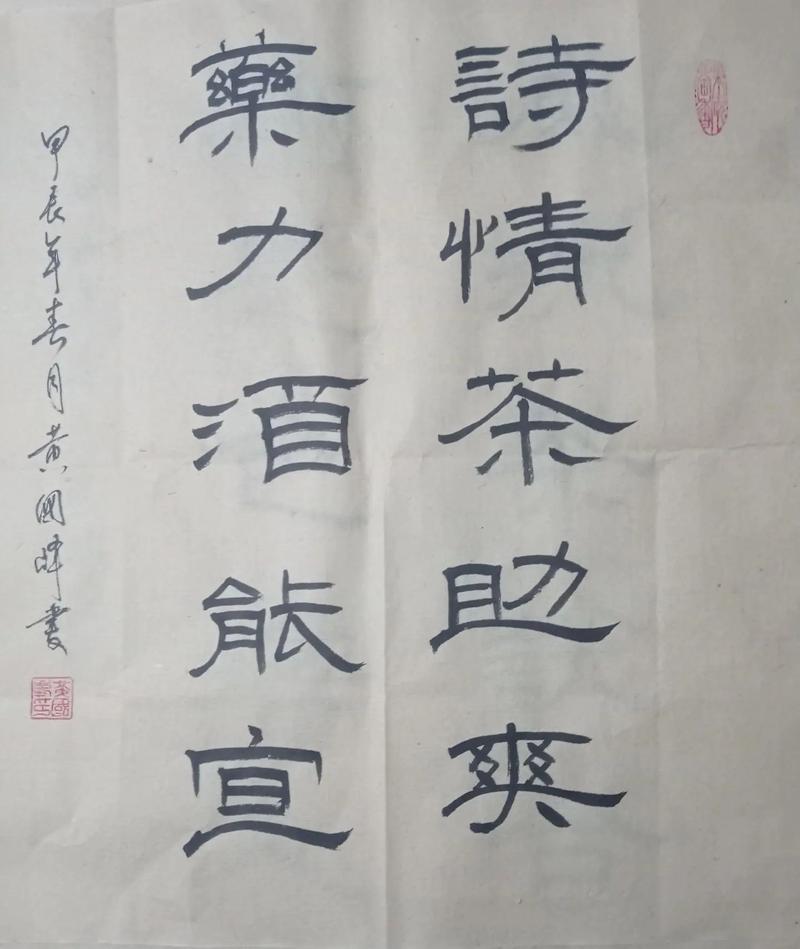 詩情茶助爽
藥力酒能宣
甲辰年春月黄國峰書